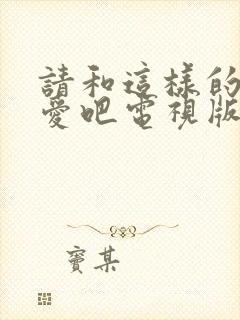 請和這樣的
愛吧電視版
竇某